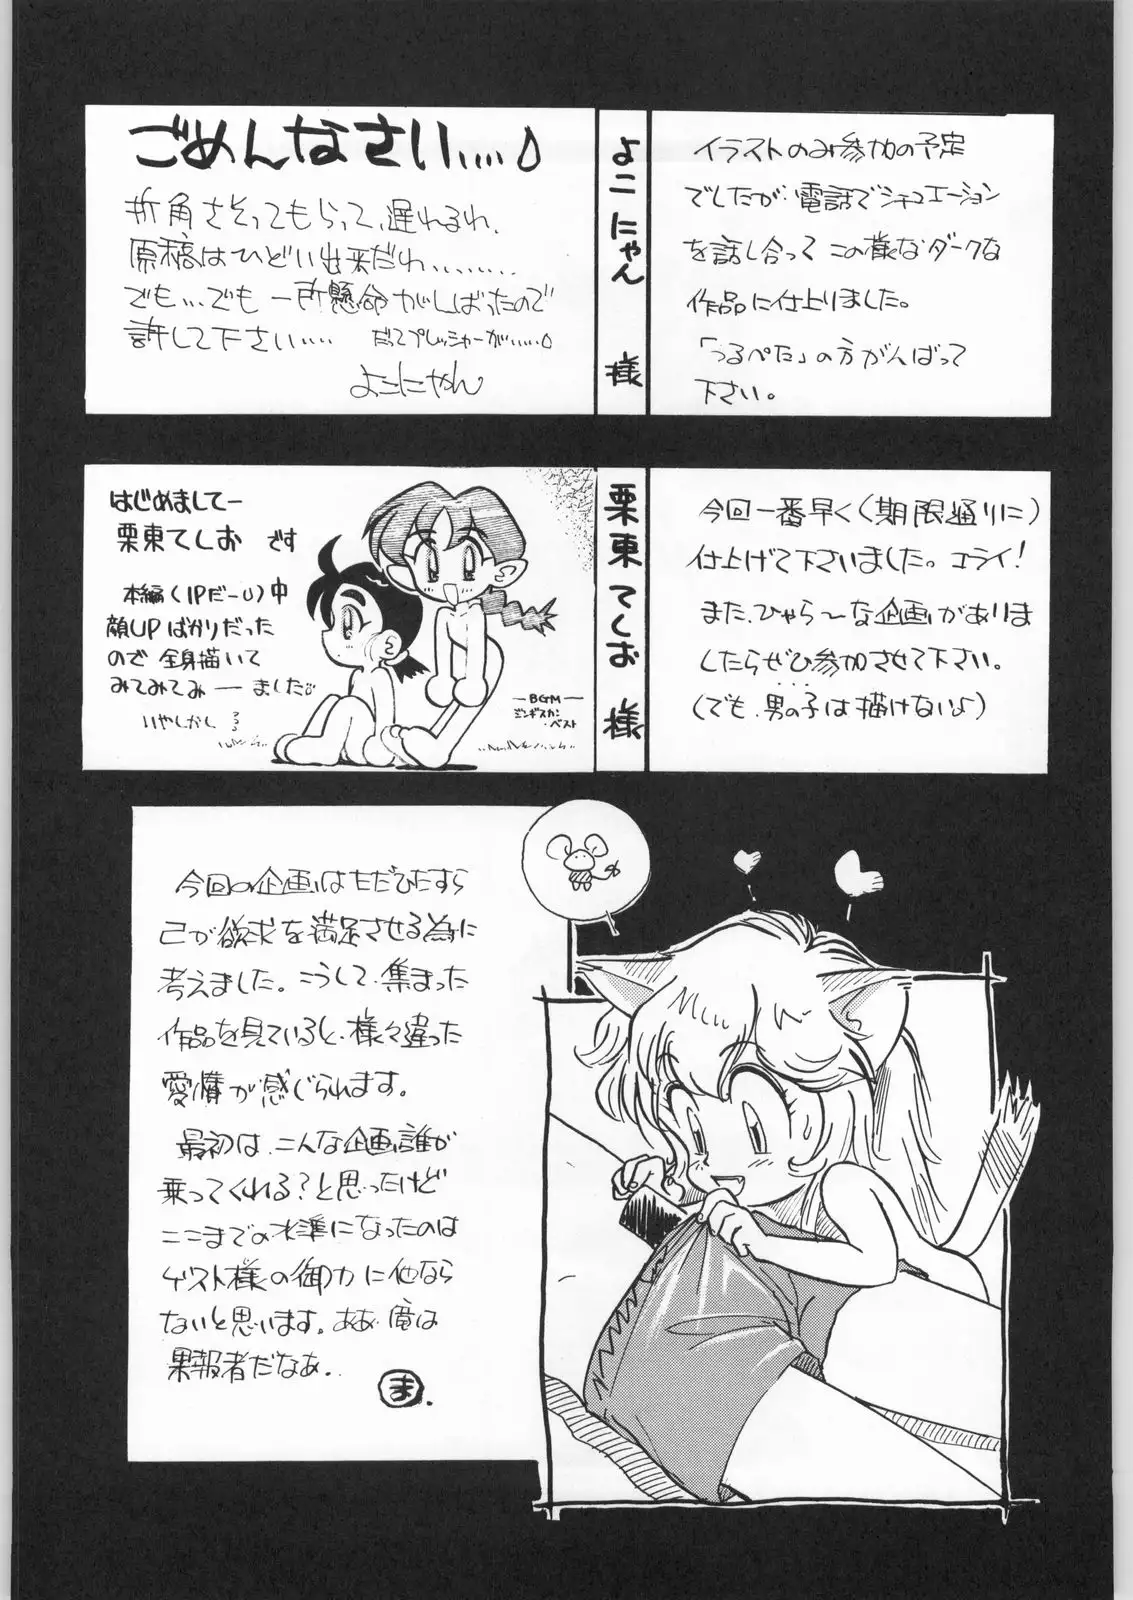 ごめんなさい....
折角さそってもらって、遅れるわ、
原稿はひどい出来だわ、........
でも...でも一所懸命がんばったので
許して下さい....
だってプレッシャーが.....
よこにゃん
よこにゃん 様
イラストのみ参加の予定
でしたが、電話でシチュエーション
を話し合って この様なダークな
作品に仕上りました。
「うるぺた」の方がんばって
下さい。
はじめましてー
栗東てしお です
本編(1PだーU)中
顔UPばかりだった
ので 全身描いて
みてみてみーーました
いやしかし
ーBGMー
ジンギスカン
・ベスト
栗東てしお 様
今回一番早く(期限通りに)
仕上げて下さいました。エライ!
また、ひゃら〜な企画がありま
したらぜひ参加させて下さい。
(でも、男の子は描けないよ)
今回の企画はただひたすら
己が欲求を満足させる為に
考えました。こうして、集まった
作品を見ていると、様々違った
愛情が感じられます。
最初は、こんな企画誰が
乗ってくれる?と思ったけど
ここまでの水準になったのは
ゲスト様の御力に他なら
ないと思います。ああ、俺は
果報者だなあ..
ま.